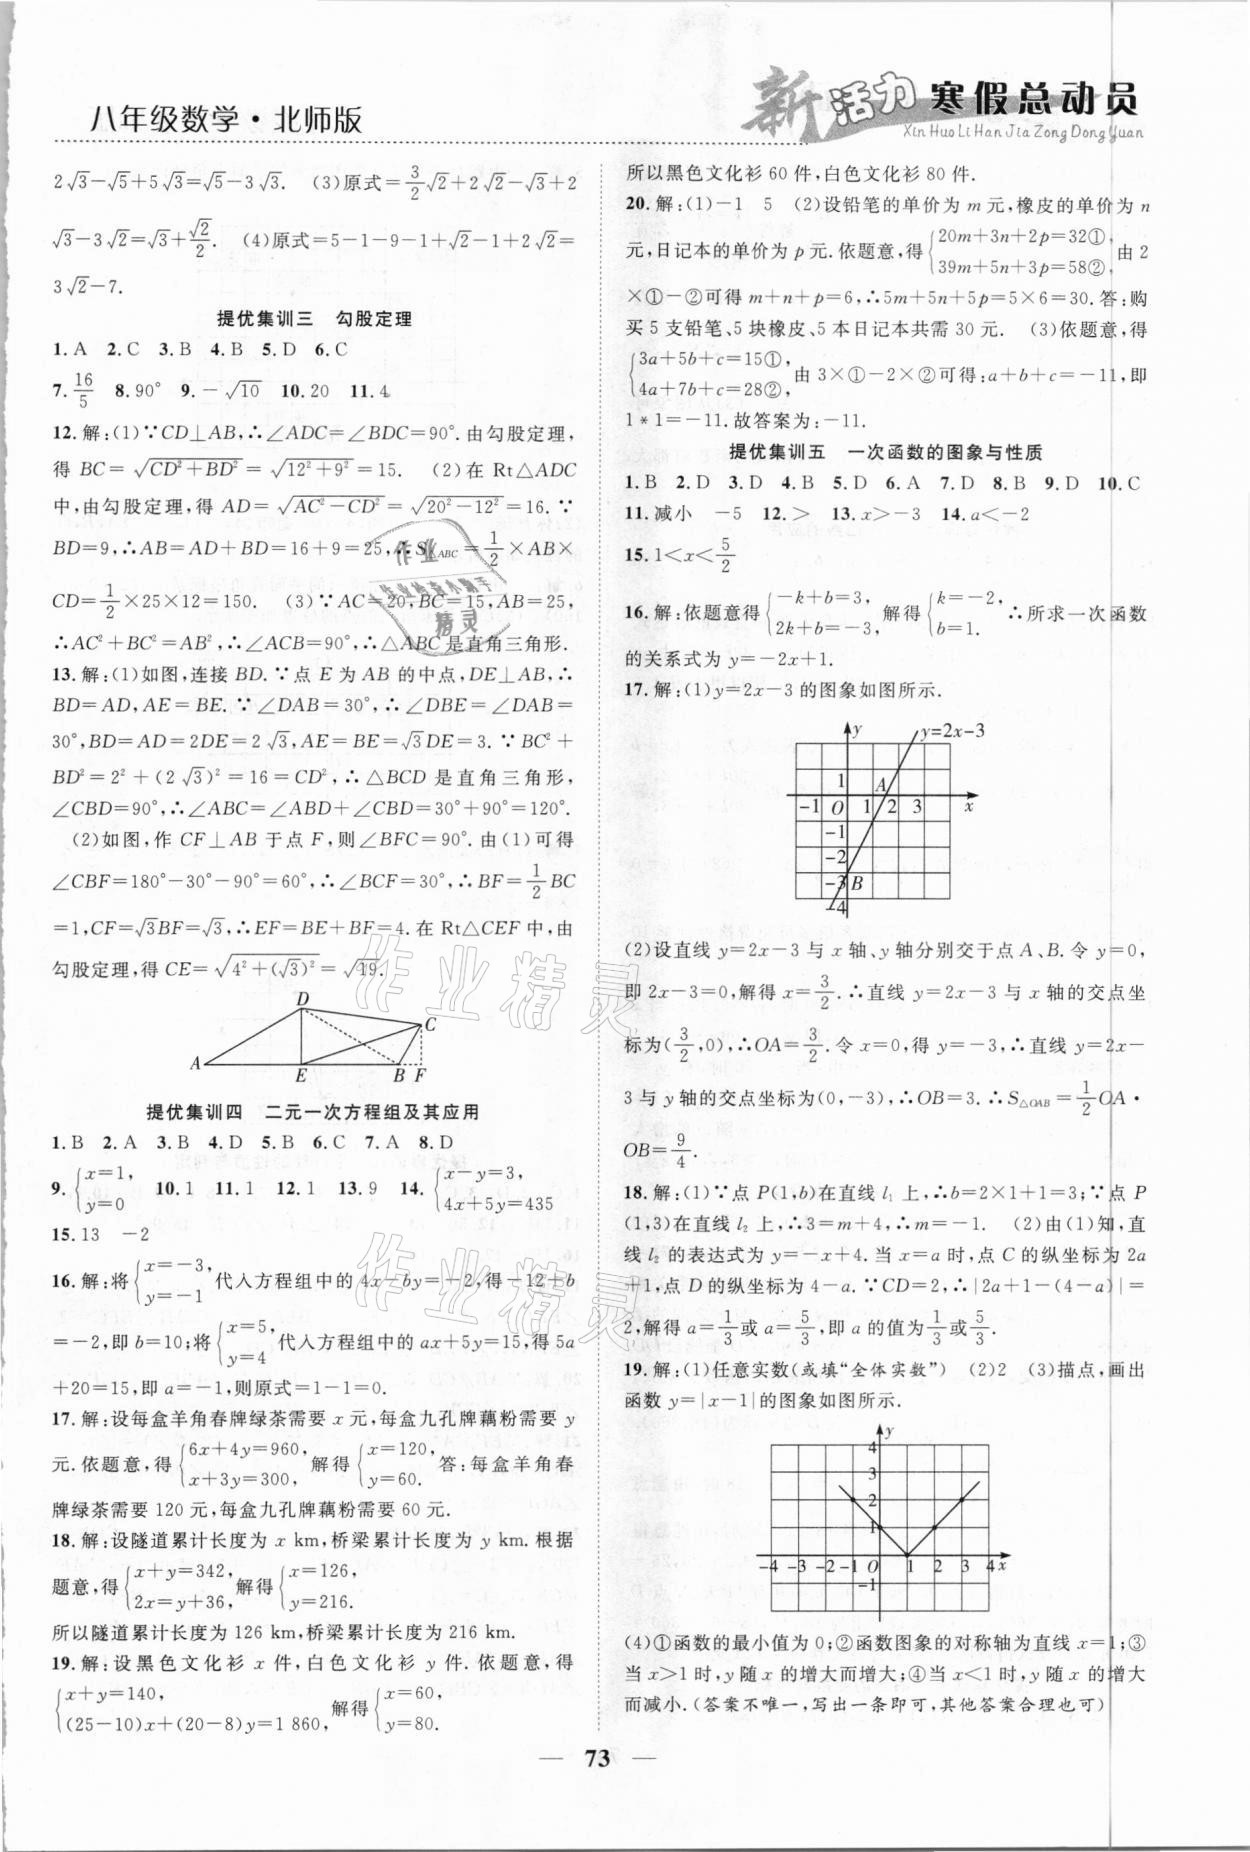 八年级数学·北师版
新活力 寒假总动员
Xin Huo Li Han Jia Zong Dong Yuan
2√3−√5+5√3=√5−3√3. (3)原式=3/2√2+2√2−√3+2
√3−3√2=√3+√2/2. (4)原式=5−1−9−1+√2−1+2√2=
3√2−7.
提优集训三 勾股定理
1.A 2.C 3.B 4.B 5.D 6.C
7.16/5 8.90° 9.−√10 10.20 11.4
12.解:(1)∵CD⊥AB,∴∠ADC=∠BDC=90°.由勾股定理,
得 BC=√(CD²+BD²)=√(12²+9²)=15. (2)在 Rt△ADC
中,由勾股定理,得 AD=√(AC²−CD²)=√(20²−12²)=16.∵
BD=9,∴AB=AD+BD=16+9=25,∴S△ABC=1/2×AB×
CD=1/2×25×12=150. (3)∵AC=20,BC=15,AB=25,
∴AC²+BC²=AB²,∴∠ACB=90°,∴△ABC 是直角三角形.
13.解:(1)如图,连接 BD.∵点 E 为 AB 的中点,DE⊥AB,∴
BD=AD,AE=BE.∵∠DAB=30°,∴∠DBE=∠DAB=
30°,BD=AD=2DE=2√3,AE=BE=√3DE=3.∵BC²+
BD²=2²+(2√3)²=16=CD²,∴△BCD 是直角三角形,
∠CBD=90°,∴∠ABC=∠ABD+∠CBD=30°+90°=120°.
(2)如图,作 CF⊥AB 于点 F,则∠BFC=90°.由(1)可得
∠CBF=180°−30°−90°=60°,∴∠BCF=30°,∴BF=1/2BC
=1,CF=√3BF=√3,∴EF=BE+BF=4.在 Rt△CEF 中,由
勾股定理,得 CE=√(4²+(√3)²)=√19.
D
C
A E B F
提优集训四 二元一次方程组及其应用
1.B 2.A 3.B 4.D 5.B 6.C 7.A 8.D
9.{x=1, y=0 10.1 11.1 12.1 13.9 14.{x−y=3, 4x+5y=435
15.13 −2
16.解:将{x=−3, y=−1 代入方程组中的 4x−by=−2,得−12+b
=−2,即 b=10;将{x=5, y=4 代入方程组中的 ax+5y=15,得 5a
+20=15,即 a=−1,则原式=1−1=0.
17.解:设每盒羊角春牌绿茶需要 x 元,每盒九孔牌藕粉需要 y
元.依题意,得{6x+4y=960, x+3y=300, 解得{x=120, y=60. 答:每盒羊角春
牌绿茶需要 120 元,每盒九孔牌藕粉需要 60 元.
18.解:设隧道累计长度为 x km,桥梁累计长度为 y km.根据
题意,得{x+y=342, 2x=y+36, 解得{x=126, y=216.
所以隧道累计长度为 126 km,桥梁累计长度为 216 km.
19.解:设黑色文化衫 x 件,白色文化衫 y 件.依题意,得
{x+y=140, (25−10)x+(20−8)y=1 860, 解得{x=60, y=80.
所以黑色文化衫 60 件,白色文化衫 80 件.
20.解:(1)−1 5 (2)设铅笔的单价为 m 元,橡皮的单价为 n
元,日记本的单价为 p 元.依题意,得{20m+3n+2p=32①, 39m+5n+3p=58②, 由 2
×①−②可得 m+n+p=6,∴5m+5n+5p=5×6=30.答:购
买 5 支铅笔、5 块橡皮、5 本日记本共需 30 元. (3)依题意,得
{3a+5b+c=15①, 4a+7b+c=28②, 由 3×①−2×②可得:a+b+c=−11,即
1*1=−11.故答案为:−11.
提优集训五 一次函数的图象与性质
1.B 2.D 3.D 4.B 5.D 6.A 7.D 8.B 9.D 10.C
11.减小 −5 12.> 13.x>−3 14.a<−2
15.1<x<5/2
16.解:依题意得{−k+b=3, 2k+b=−3, 解得{k=−2, b=1. ∴所求一次函数
的关系式为 y=−2x+1.
17.解:(1)y=2x−3 的图象如图所示.
y y=2x−3
1 A
−1 O 1 2 3 x
−1
−2
−3 B
−4
(2)设直线 y=2x−3 与 x 轴、y 轴分别交于点 A、B.令 y=0,
即 2x−3=0,解得 x=3/2.∴直线 y=2x−3 与 x 轴的交点坐
标为(3/2,0),∴OA=3/2.令 x=0,得 y=−3,∴直线 y=2x−
3 与 y 轴的交点坐标为(0,−3),∴OB=3.∴S△OAB=1/2OA·
OB=9/4.
18.解:(1)∵点 P(1,b)在直线 l₁ 上,∴b=2×1+1=3;∵点 P
(1,3)在直线 l₂ 上,∴3=m+4,∴m=−1. (2)由(1)知,直
线 l₂ 的表达式为 y=−x+4.当 x=a 时,点 C 的纵坐标为 2a
+1,点 D 的纵坐标为 4−a.∵CD=2,∴|2a+1−(4−a)|=
2,解得 a=1/3或 a=5/3,即 a 的值为1/3或5/3.
19.解:(1)任意实数(或填“全体实数”) (2)2 (3)描点,画出
函数 y=|x−1|的图象如图所示.
y
4
3
2
1
−4 −3 −2 −1 O 1 2 3 4 x
−1
(4)①函数的最小值为 0;②函数图象的对称轴为直线 x=1;③
当 x>1 时,y 随 x 的增大而增大;④当 x<1 时,y 随 x 的增大
而减小.(答案不唯一,写出一条即可,其他答案合理也可)
— 73 —
作业精灵
作业精灵
作业
精灵